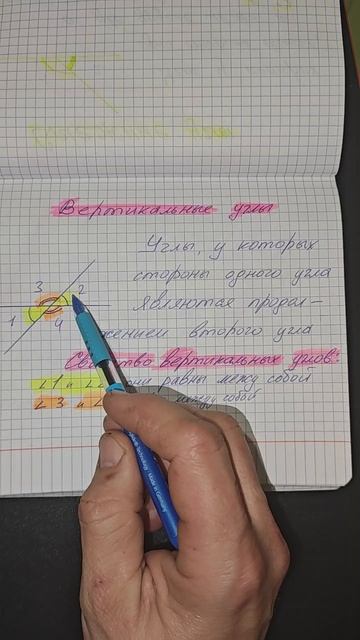 Вертикальные углы
Углы, у которых
стороны одного угла
являются продол-
жением второго угла
3
2
1
4
Свойство вертикальных углов:
∠1 и ∠ они равны между собой
∠3 и ∠ между собой
Technology Made in Germany